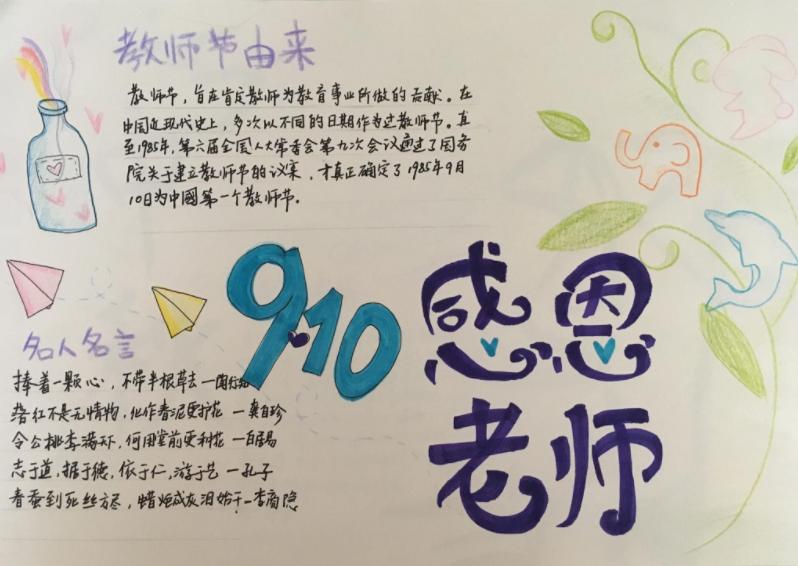 教师节由来
教师节，旨在肯定教师为教育事业所做的贡献。在
中国近现代史上，多次以不同的日期作为过教师节。直
至1985年，第六届全国人大常委会第九次会议通过了国务
院关于建立教师节的议案，才真正确定了1985年9月
10日为中國第一个教师节。
9.10
感恩
老师
名人名言
捧着一颗心，不带半根草去—陶行知
落红不是无情物，化作春泥更护花 —龚自珍
令公桃李满天下，何用堂前更种花 —白居易
志于道，据于德，依于仁，游于艺 —孔子
春蚕到死丝方尽，蜡炬成灰泪始干—李商隐